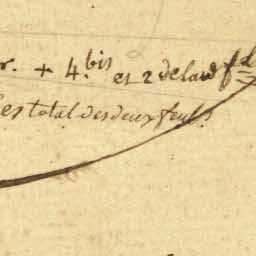 r. + 4.bis et 2 de la d
es total des deux feuls.